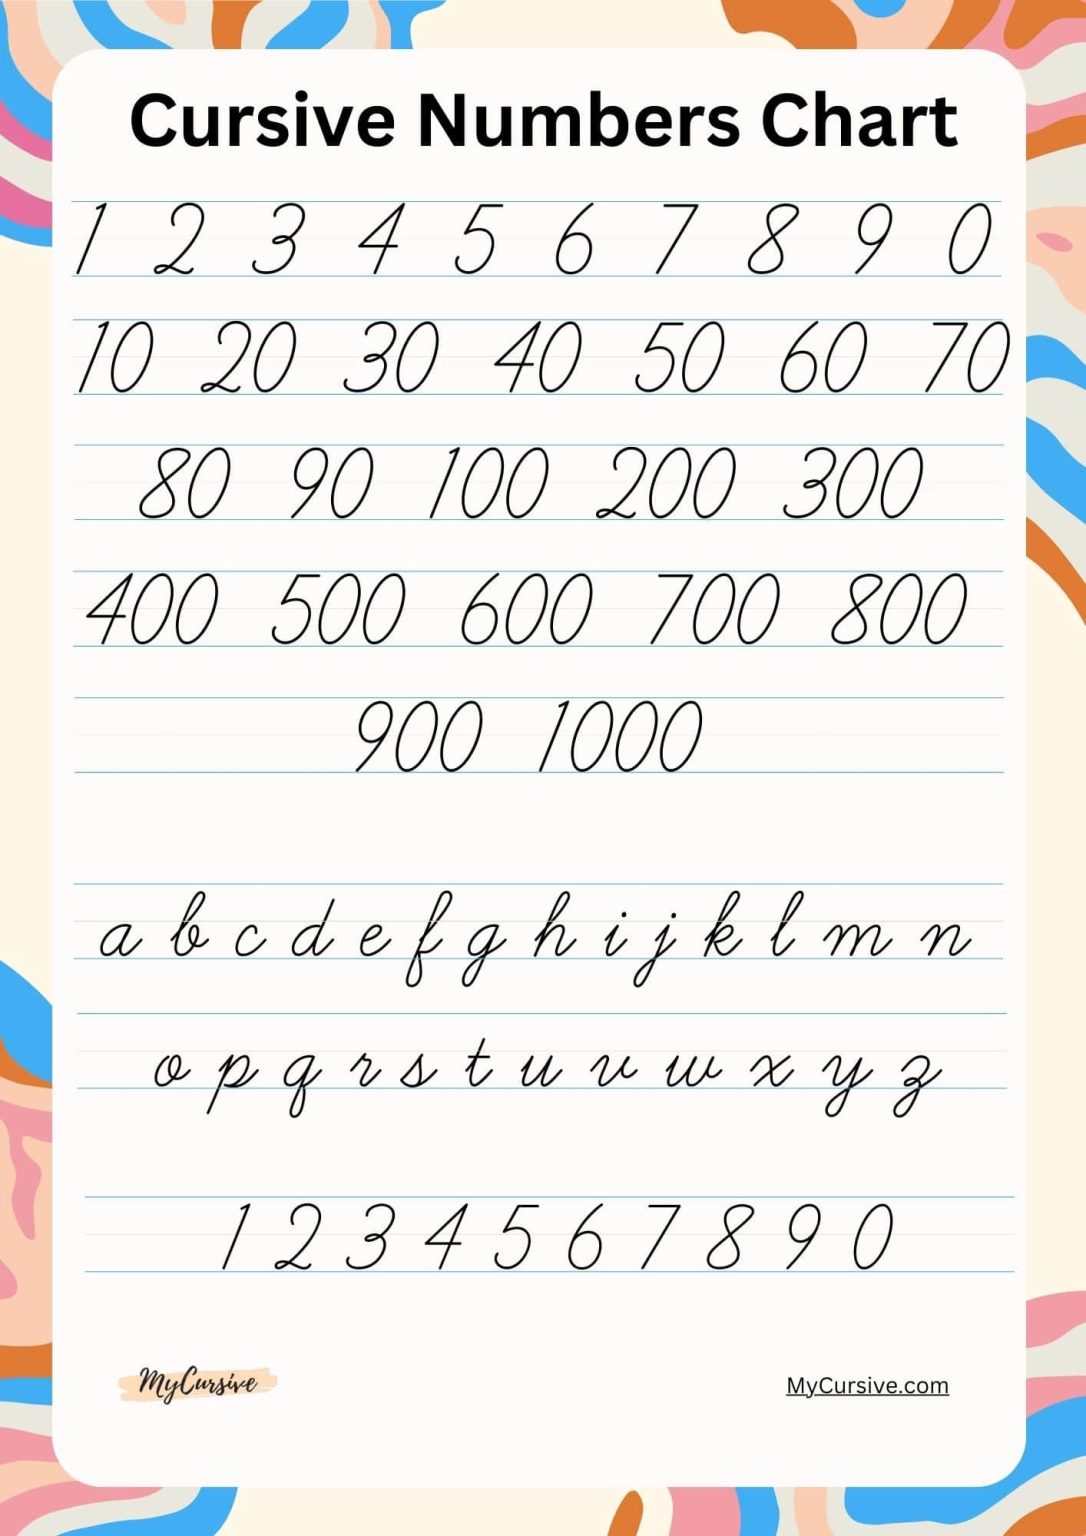 Cursive Numbers Chart
1 2 3 4 5 6 7 8 9 0
10 20 30 40 50 60 70
80 90 100 200 300
400 500 600 700 800
900 1000
a b c d e f g h i j k l m n
o p q r s t u v w x y z
1 2 3 4 5 6 7 8 9 0
MyCursive
MyCursive.com